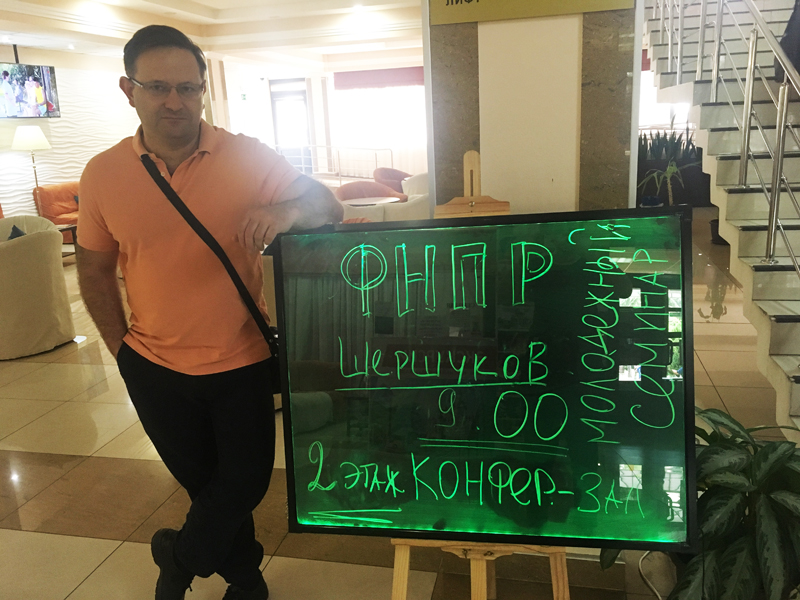 ЛИФТ
ФНПР
Шершуков
9.00
2 этаж КОНФЕР.-ЗАЛ
МОЛОДЕЖНЫЙ
СЕМИНАР